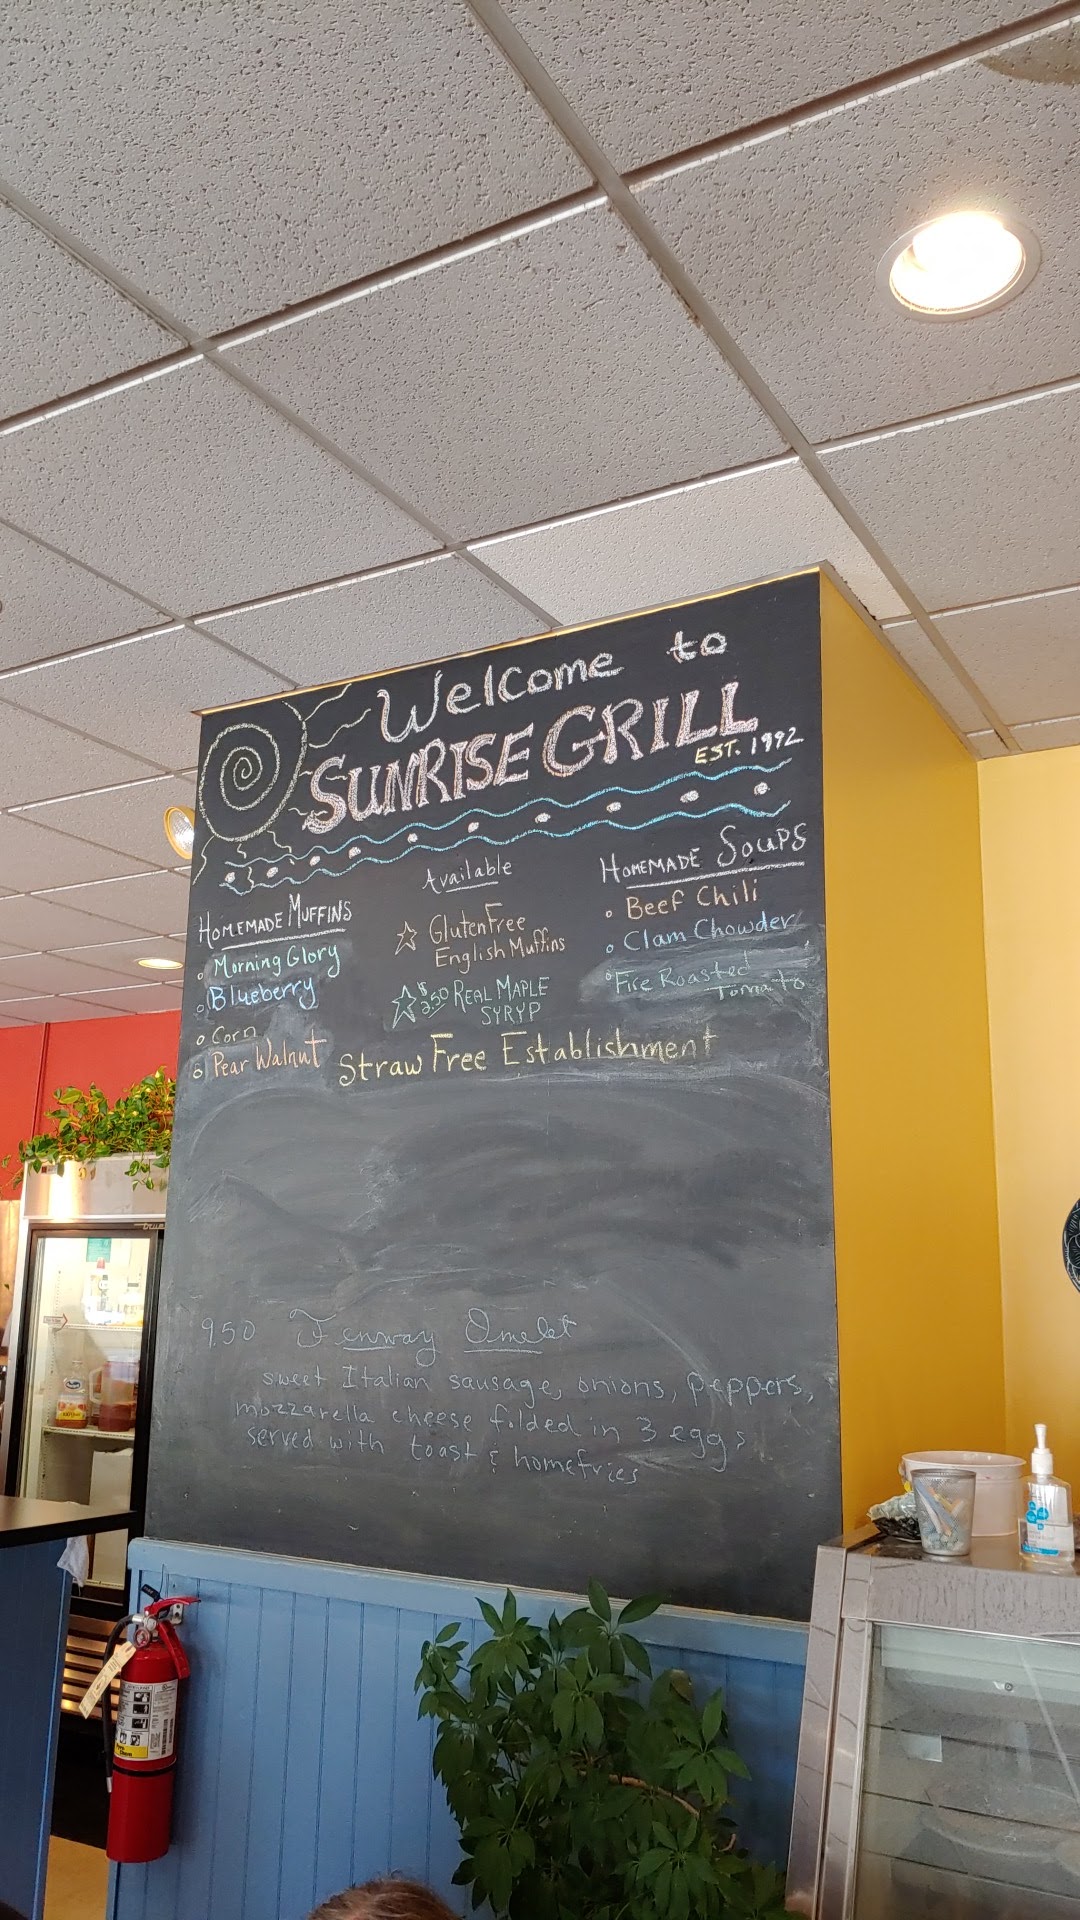 Welcome to
SUNRISE GRILL
EST. 1992
HOMEMADE MUFFINS
Morning Glory
Blueberry
Corn
Pear Walnut
Available
Gluten Free
English Muffins
$2.50 REAL MAPLE
SYRYP
HOMEMADE SOUPS
Beef Chili
Clam Chowder
Fire Roasted
Tomato
Straw Free Establishment
9.50 Fenway Omelet
sweet Italian sausage, onions, peppers,
mozzarella cheese folded in 3 eggs
served with toast & homefries